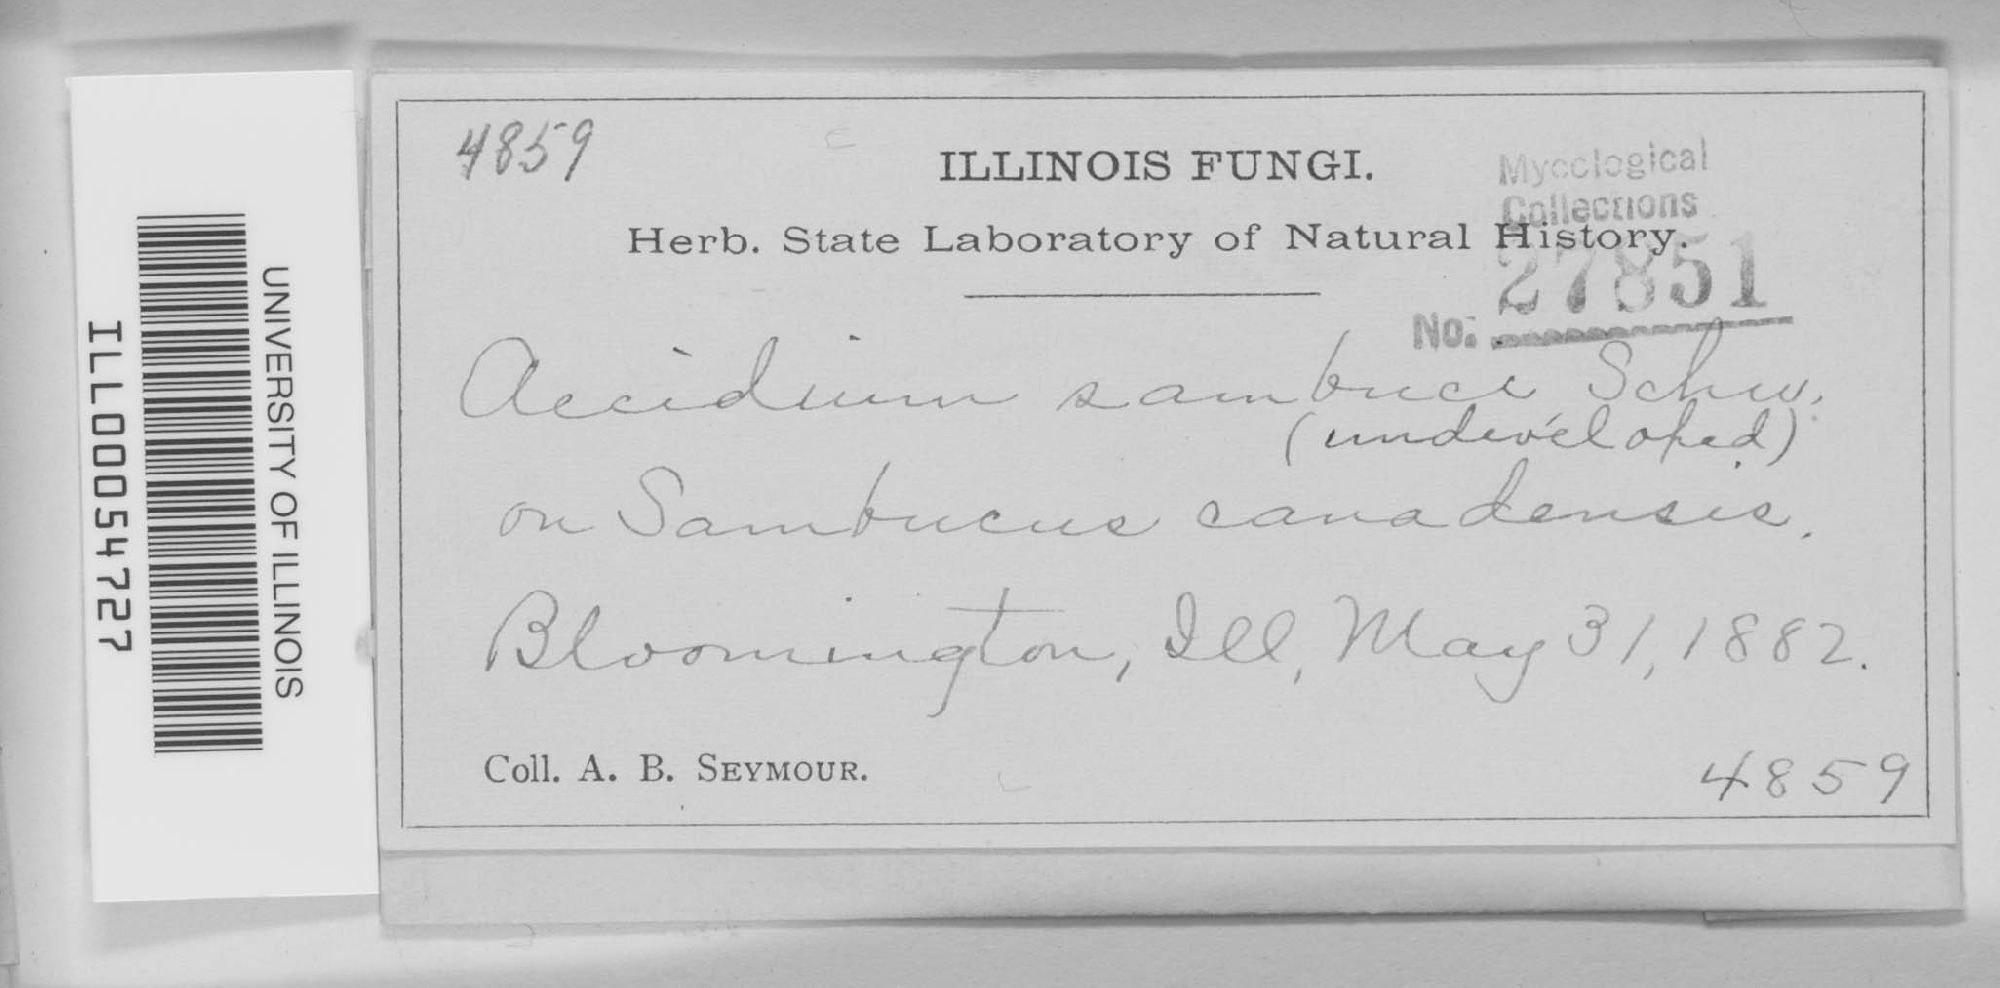 4859
ILLINOIS FUNGI.
Mycological
Collections
Herb. State Laboratory of Natural History.
No. 27851
Aecidium sambuci Schw.
(undeveloped)
on Sambucus canadensis.
Bloomington, Ill, May 31, 1882.
Coll. A. B. SEYMOUR.
4859
UNIVERSITY OF ILLINOIS
ILL00054727